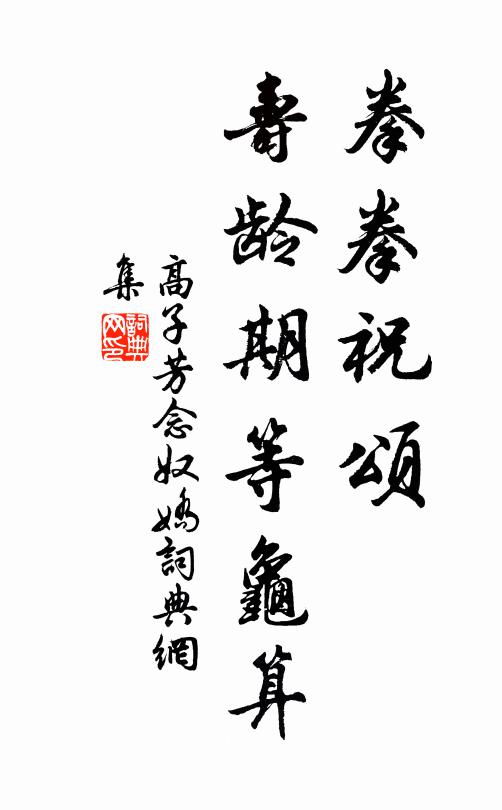 拳拳祝頌
壽龄期等龜算
高子芳念奴嬌詞典網
集
詞典
网印